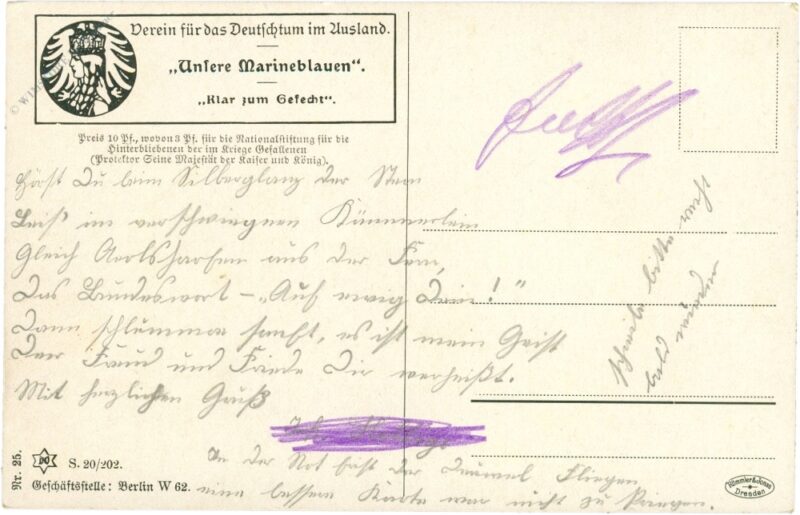 Verein für das Deutschtum im Ausland.
„Unsere Marineblauen“.
„Klar zum Gefecht“.
Preis 10 Pf., wovon 3 Pf. für die Nationalstiftung für die
Hinterbliebenen der im Kriege Gefallenen
(Protektor Seine Majestät der Kaiser und König).
Hörst Du beim Silberglanz der Stern
Leis' im verschwiegnen Kämmerlein
Gleich Aeolsharfen aus der Fern,
Das Bundeswort – „Auf ewig Dein!“
Dann schlummre sanft, es ist mein Geist
Der Freud und Friede Dir verheißt.
Mit herzlichen Gruß
In der Not frißt der Teuwel Fliegen
eine bessere Karte war nicht zu kriegen.
schreibe bitte recht
bald wieder
Nr. 25.
S. 20/202.
Geschäftsstelle: Berlin W 62.
Römmler & Jonas
Dresden